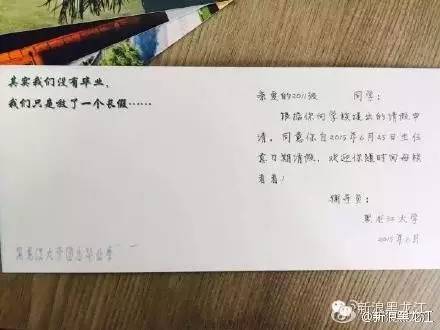 其实我们没有毕业,
我们只是放了一个长假……
亲爱的2011级 同学:
根据你向学校提出的请假申
请,同意你自2015年6月25日至任
意日期请假,欢迎你随时回母校
看看!
辅导员:
黑龙江大学
2015年6月
新浪黑龙江
@新浪黑龙江